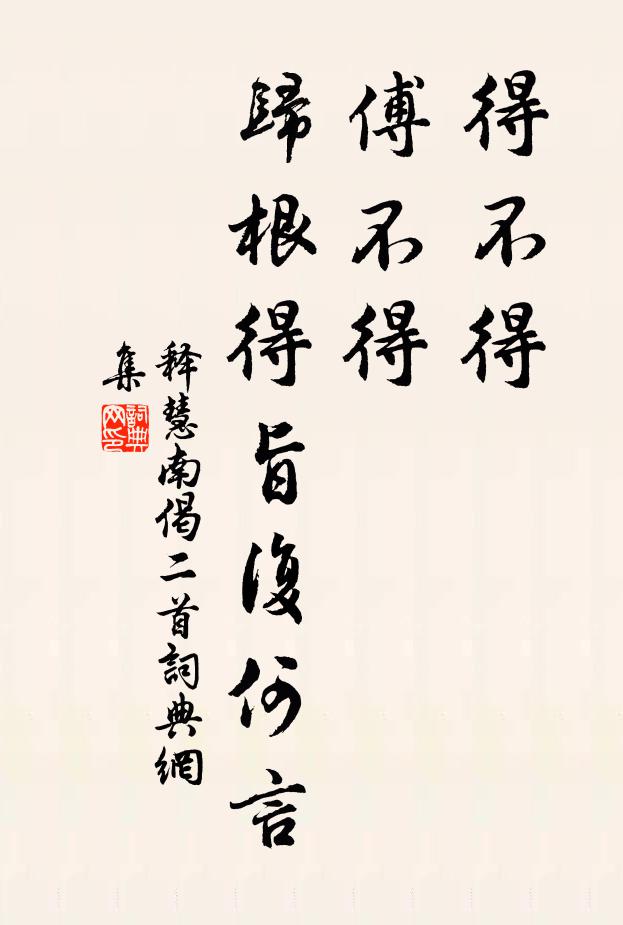 得不得
傅不得
歸根得旨復何言
释慧南偈二首詞典網
集
詞典
网印